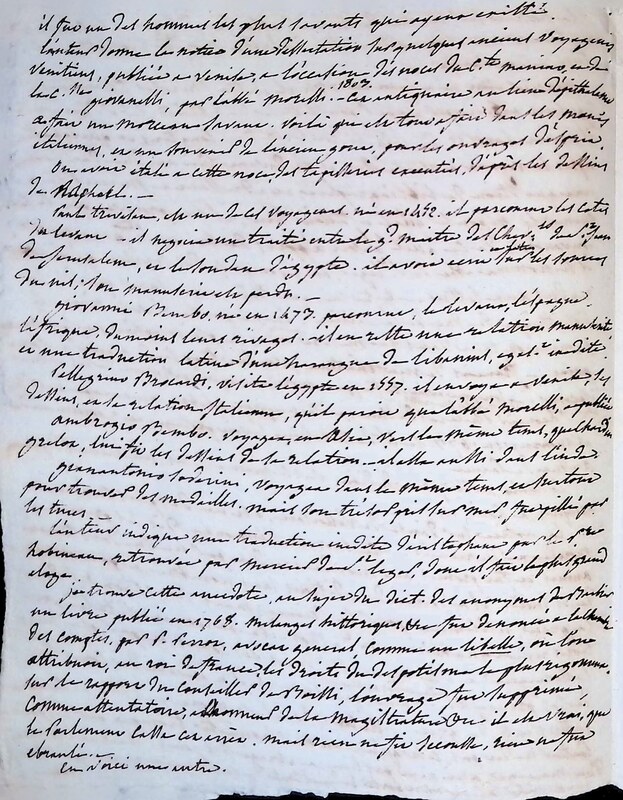 il fut un des hommes les plus savants qui ayent existé.
l'auteur donne la notice d'une dissertation sur quelques anciens voyageurs
venitiens, publiée a venise, a l'occasion des noces du C.te manino, et de
la C.sse giovanelli, par l'abbé morelli. 1803. Cet antiquaire au lieu d'épithalame
a fait un morceau savant. voilà qui est tout a fait dans les mœurs
italiennes, et un souvenir de l'ancien gout, pour les ouvrages d'esprit.
On avoit étalé a cette noce, des tapisseries executées, d'après les dessins
de Raphael. —
Paul trevisan, est un de ces voyageurs. né en 1452. il parcourut les cotes
du levant — il negocia un traité entre le g.d maitre des Chev.ers de S.t Jean
de Jerusalem, et le soudan d'égypte. il avoit ecrit un traité sur les sources
du nil; son manuscrit est perdu. —
giovanni Bembo, né en 1473. parcourut, le levant, l'espagne,
l'afrique, du moins leurs rivages. il en reste une relation manuscrite
et une traduction latine d'une harangue de libanius, egal.t inedite.
Pellegrino Brocardi, visite l'égypte en 1557. il envoya a venise, les
dessins, et la relation italienne, qu'il paroit que l'abbé morelli, a publiée
ambrogio Bembo. voyagea en Asie, vers le même tems, que chardin
grelot, lui fit les dessins de la relation. — il alla aussi dans l'inde
gianantonio soderini, voyagea dans le même tems, et surtout
pour trouver des medailles, mais son tresor pris sur mer, fut pillé par
les turcs.
l'auteur indique une traduction inedite d'aristophane par le
hobineau, retrouvée par mercier de S.t leger, dont il fait le plus grand
eloge.
je trouve cette anecdote, au sujet du dict. des anonymes de Barbier
un livre publié en 1768. melanges historiques, &c fut denoncé a la chambre
des comptes, par P. Perrot, avocat general, comme un libelle, où l'on
attribuoit, au roi de france, les droits du despotisme le plus
sur le rapport du Conseiller de Boissi, l'ouvrage fut supprimé
comme attentatoire, a l'honneur de la magistrature &c il est vrai, que
le Parlement cassa cet arrêt. mais rien ne fut secousse, rien ne fut
ebranlé. —
en voici une autre.